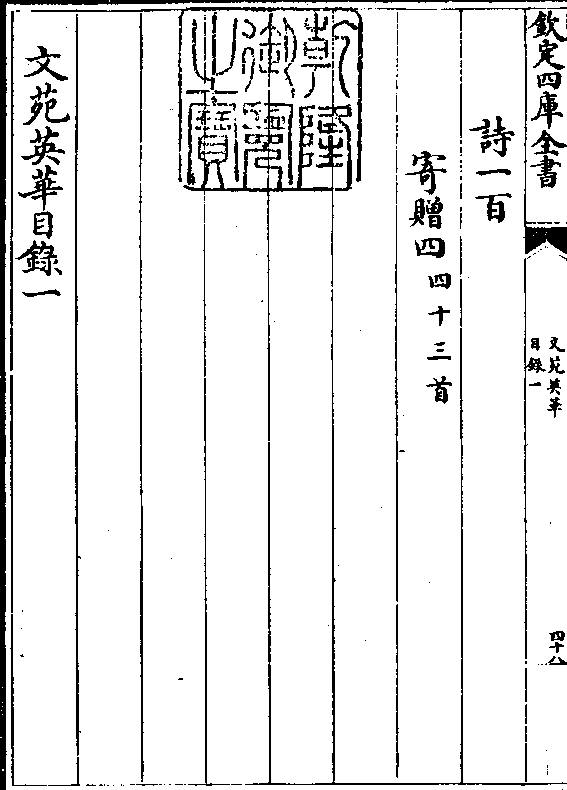 欽定四庫全書
文苑英華
目錄一
四十八
詩一百
寄贈四四十三首
乾隆御覽之寶
文苑英華目錄一